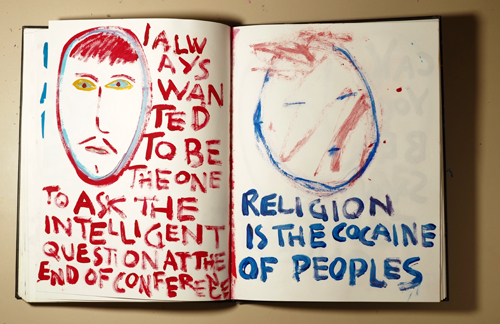 I ALW
AYS
WAN
TED
TO BE
THE ONE
TO ASK THE
INTELLIGENT
QUESTION AT THE
END OF CONFERENCE
RELIGION
IS THE COCAINE
OF PEOPLES